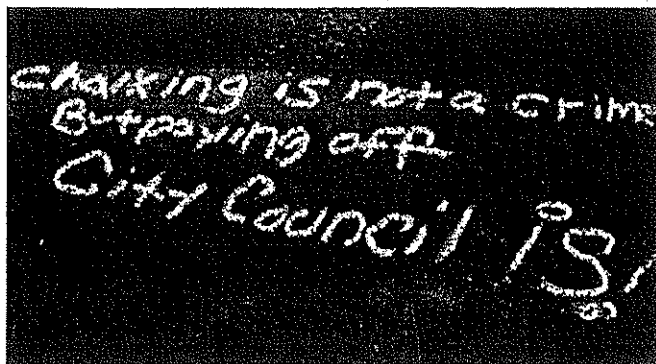 Chalking is not a crime
But paying off
City Council is!